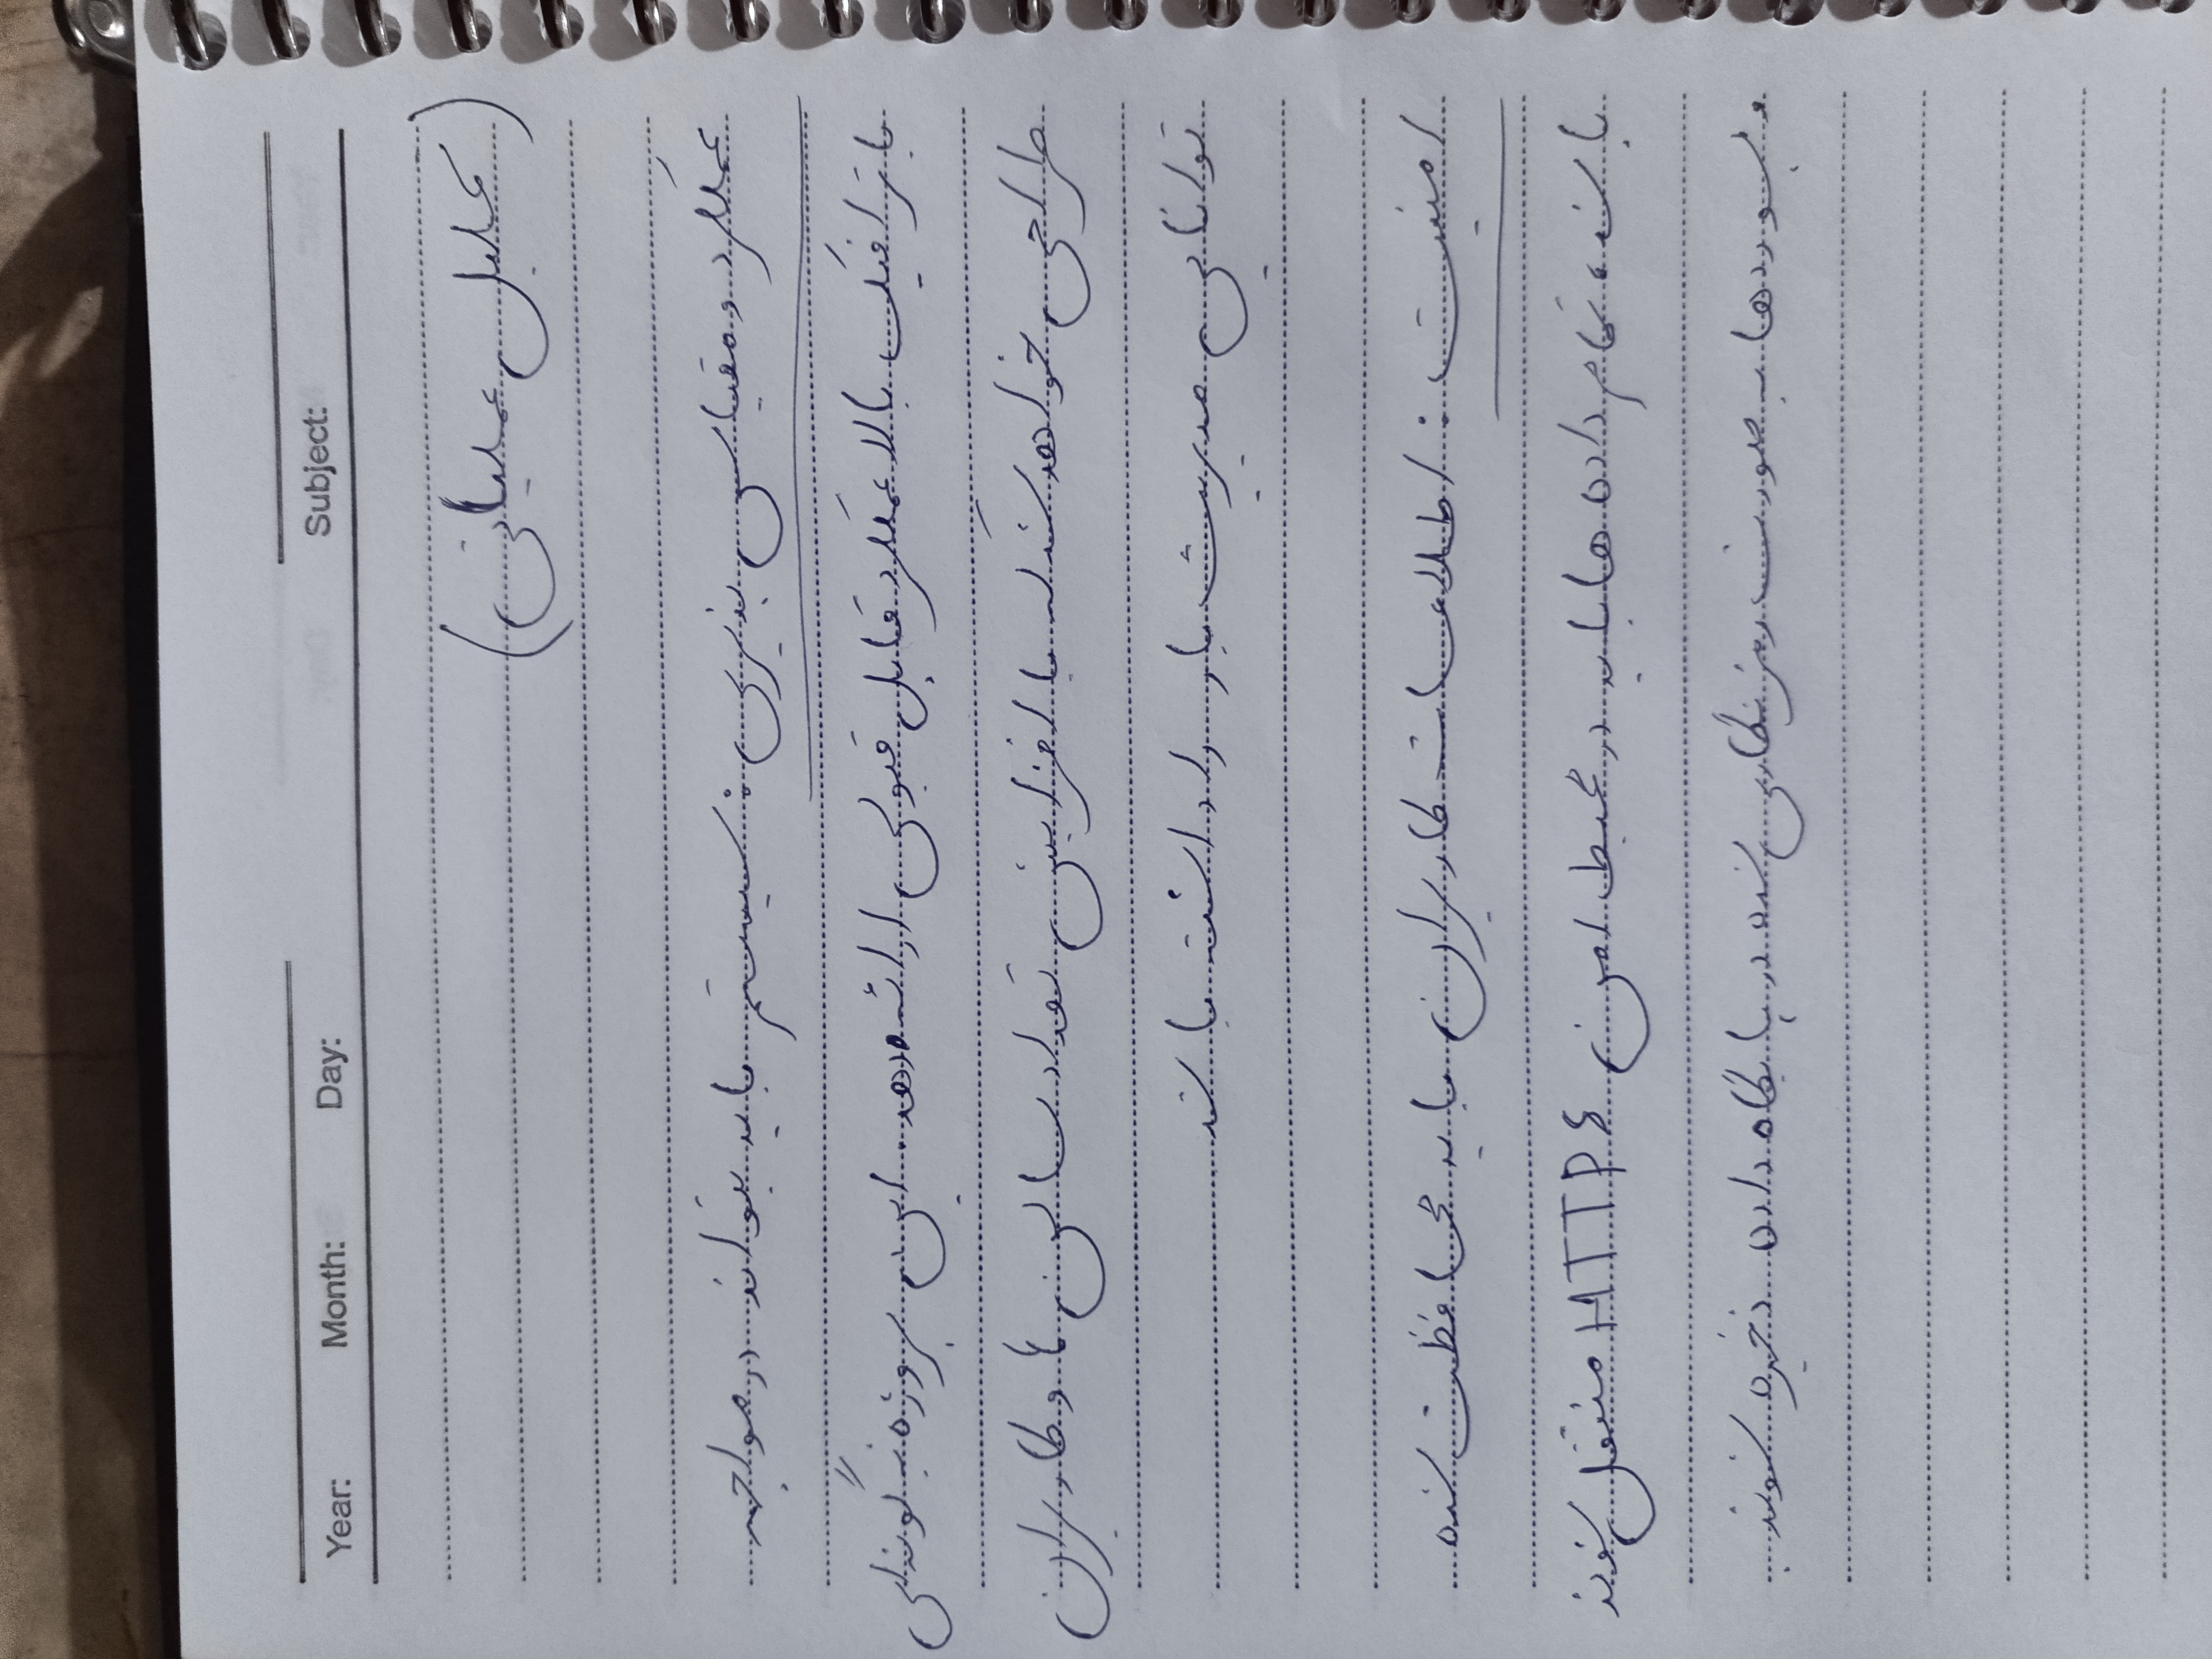 Year: Month: Day: Subject:
(تحلیل عملیاتی)
عملکرد و مقیاس پذیری : سیستم باید بتواند در مواجهه
با ترافیک بالا عملکرد قابل قبولی ارائه دهد. این پروژه به گونه‌ای
طراحی خواهد شد که با افزایش تعداد سالن ها و کاربران
توانایی مدیریت بار را داشته باشد
امنیت : اطلاعات کاربران باید محافظت شده
باشند، تمام داده ها باید در محیط امن HTTPS منتقل شوند
و پسوردها به صورت رمزنگاری شده در پایگاه داده ذخیره شوند.